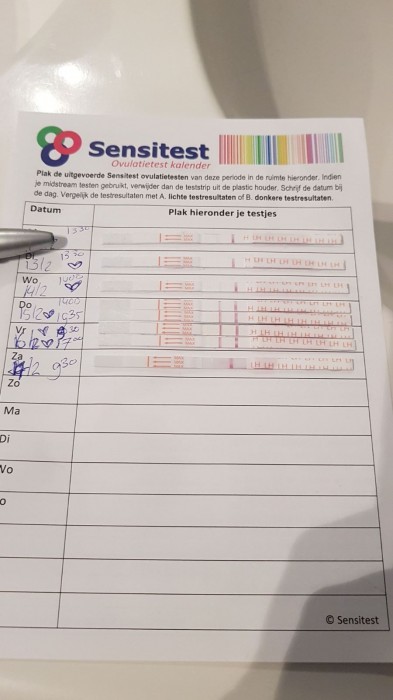 Sensitest
Ovulatietest kalender
Plak de uitgevoerde Sensitest ovulatietesten van deze periode in de ruimte hieronder. Indien
je midstream testen gebruikt, verwijder dan de teststrip uit de plastic houder. Schrijf de datum bij
de dag. Vergelijk de testresultaten met A. lichte testresultaten of B. donkere testresultaten.
Datum Plak hieronder je testjes
1330
Di 1330
13/2
Wo 1400
14/2
Do 1400
15/2 1935
Vr
Za
930
Zo
Ma
Di
Wo
© Sensitest